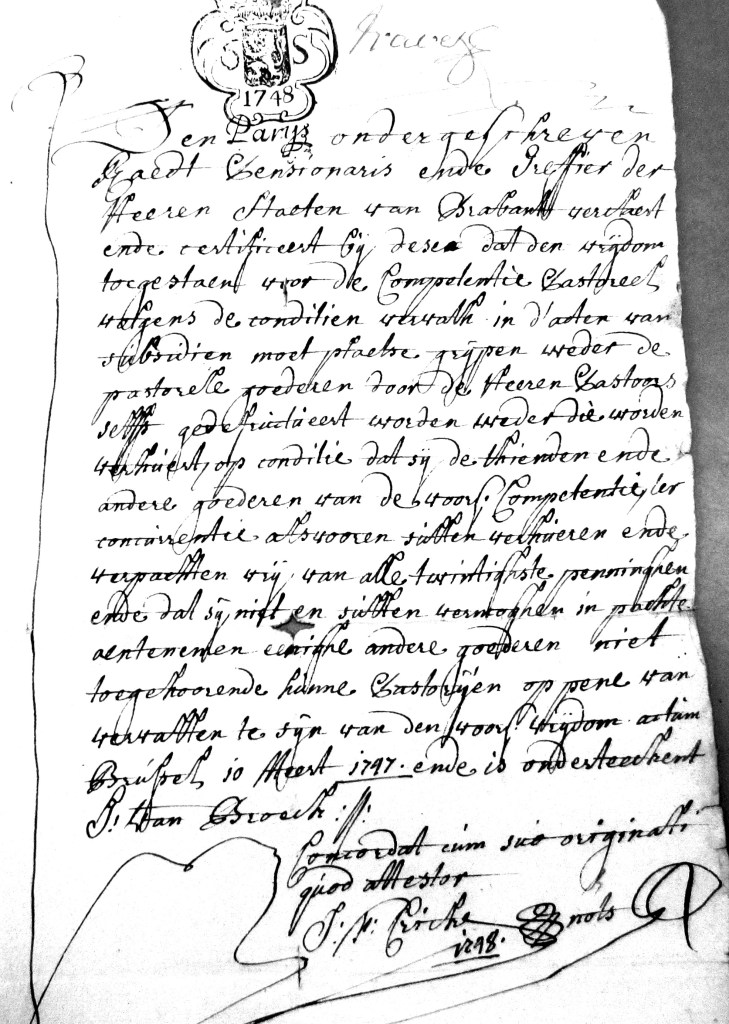 S S
1748
Den ondergeschreven
Raedt Pensionaris ende Greffier der
Heeren Staeten van Brabant verclaert
ende certificeert bij desen dat den vrijdom
toegestaen voor de Competentie Pastoreel
volgens de conditien vervath in d'acten van
subsidien moet plaetse grijpen weder de
pastorele goederen door de Heeren Pastoors
selfs gedefructueert worden weder die worden
verhuert, op conditie dat sij de thienden ende
andere goederen van de voors. Competentie, ter
concurrentie alsvooren sullen verhueren ende
verpachten vrij van alle twintighste penninghen
ende dat sij niet en sullen vermoghen in pachte
aentenemen eenighe andere goederen niet
toegehoorende hunne Pastorijen op pene van
vervallen te sijn van den voors. vrijdom actum
Brussel 10 Meert 1747. ende is onderteeckent
J: Van Broeck :/:
Concordat cum suo originali
quod attestor
J: 
1748.
nots